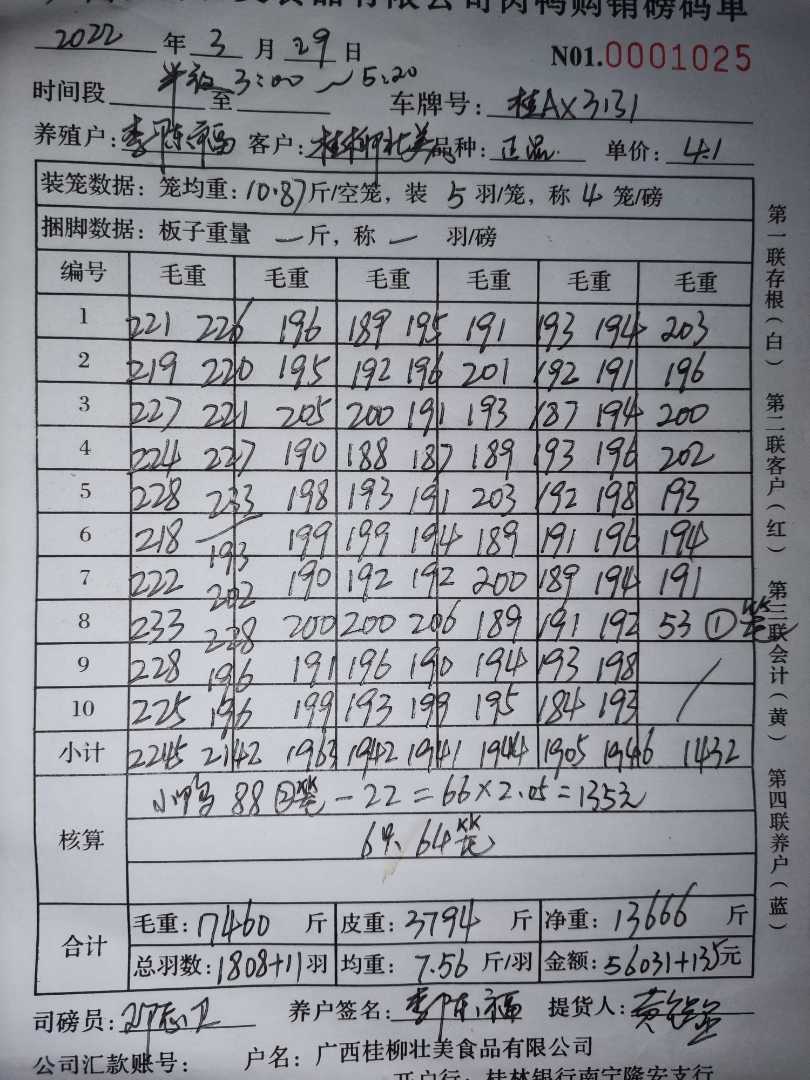 食品有限公司肉鸭购销磅码单
2022 年 3 月 29 日 N01.0001025
时间段 半夜3:00 至 ~5:20 车牌号: 桂AX3131
养殖户: 李陈福 客户: 桂柳壮美 品种: 正品 单价: 4.1
装笼数据: 笼均重: 10.87 斤/空笼, 装 5 羽/笼, 称 4 笼/磅
捆脚数据: 板子重量 一 斤, 称 一 羽/磅
编号 毛重 毛重 毛重 毛重 毛重 毛重
1 221 226 196 189 195 191 193 194 203
2 219 220 195 192 196 201 192 191 196
3 227 221 205 200 191 193 187 194 200
4 224 227 190 188 187 189 193 196 202
5 228 233 198 193 191 203 192 198 193
6 218 193 199 199 194 189 191 196 194
7 222 202 190 192 192 200 189 194 191
8 233 228 200 200 206 189 191 192 53 ①笼
9 228 196 191 196 190 194 193 198
10 225 196 199 193 199 195 184 193
小计 2245 2142 1963 1942 1941 1944 1905 1946 1432
核算 小鸭 88 ②笼 - 22 = 66 × 2.05 = 135元
64笼
合计 毛重: 17460 斤 皮重: 3794 斤 净重: 13666 斤
总羽数: 1808+11 羽 均重: 7.56 斤/羽 金额: 56031+135 元
司磅员: 养户签名: 李陈福 提货人:
公司汇款账号: 户名: 广西桂柳壮美食品有限公司
开户行: 桂林银行南宁隆安支行
第一联存根(白) 第二联客户(红) 第三联会计(黄) 第四联养户(蓝)